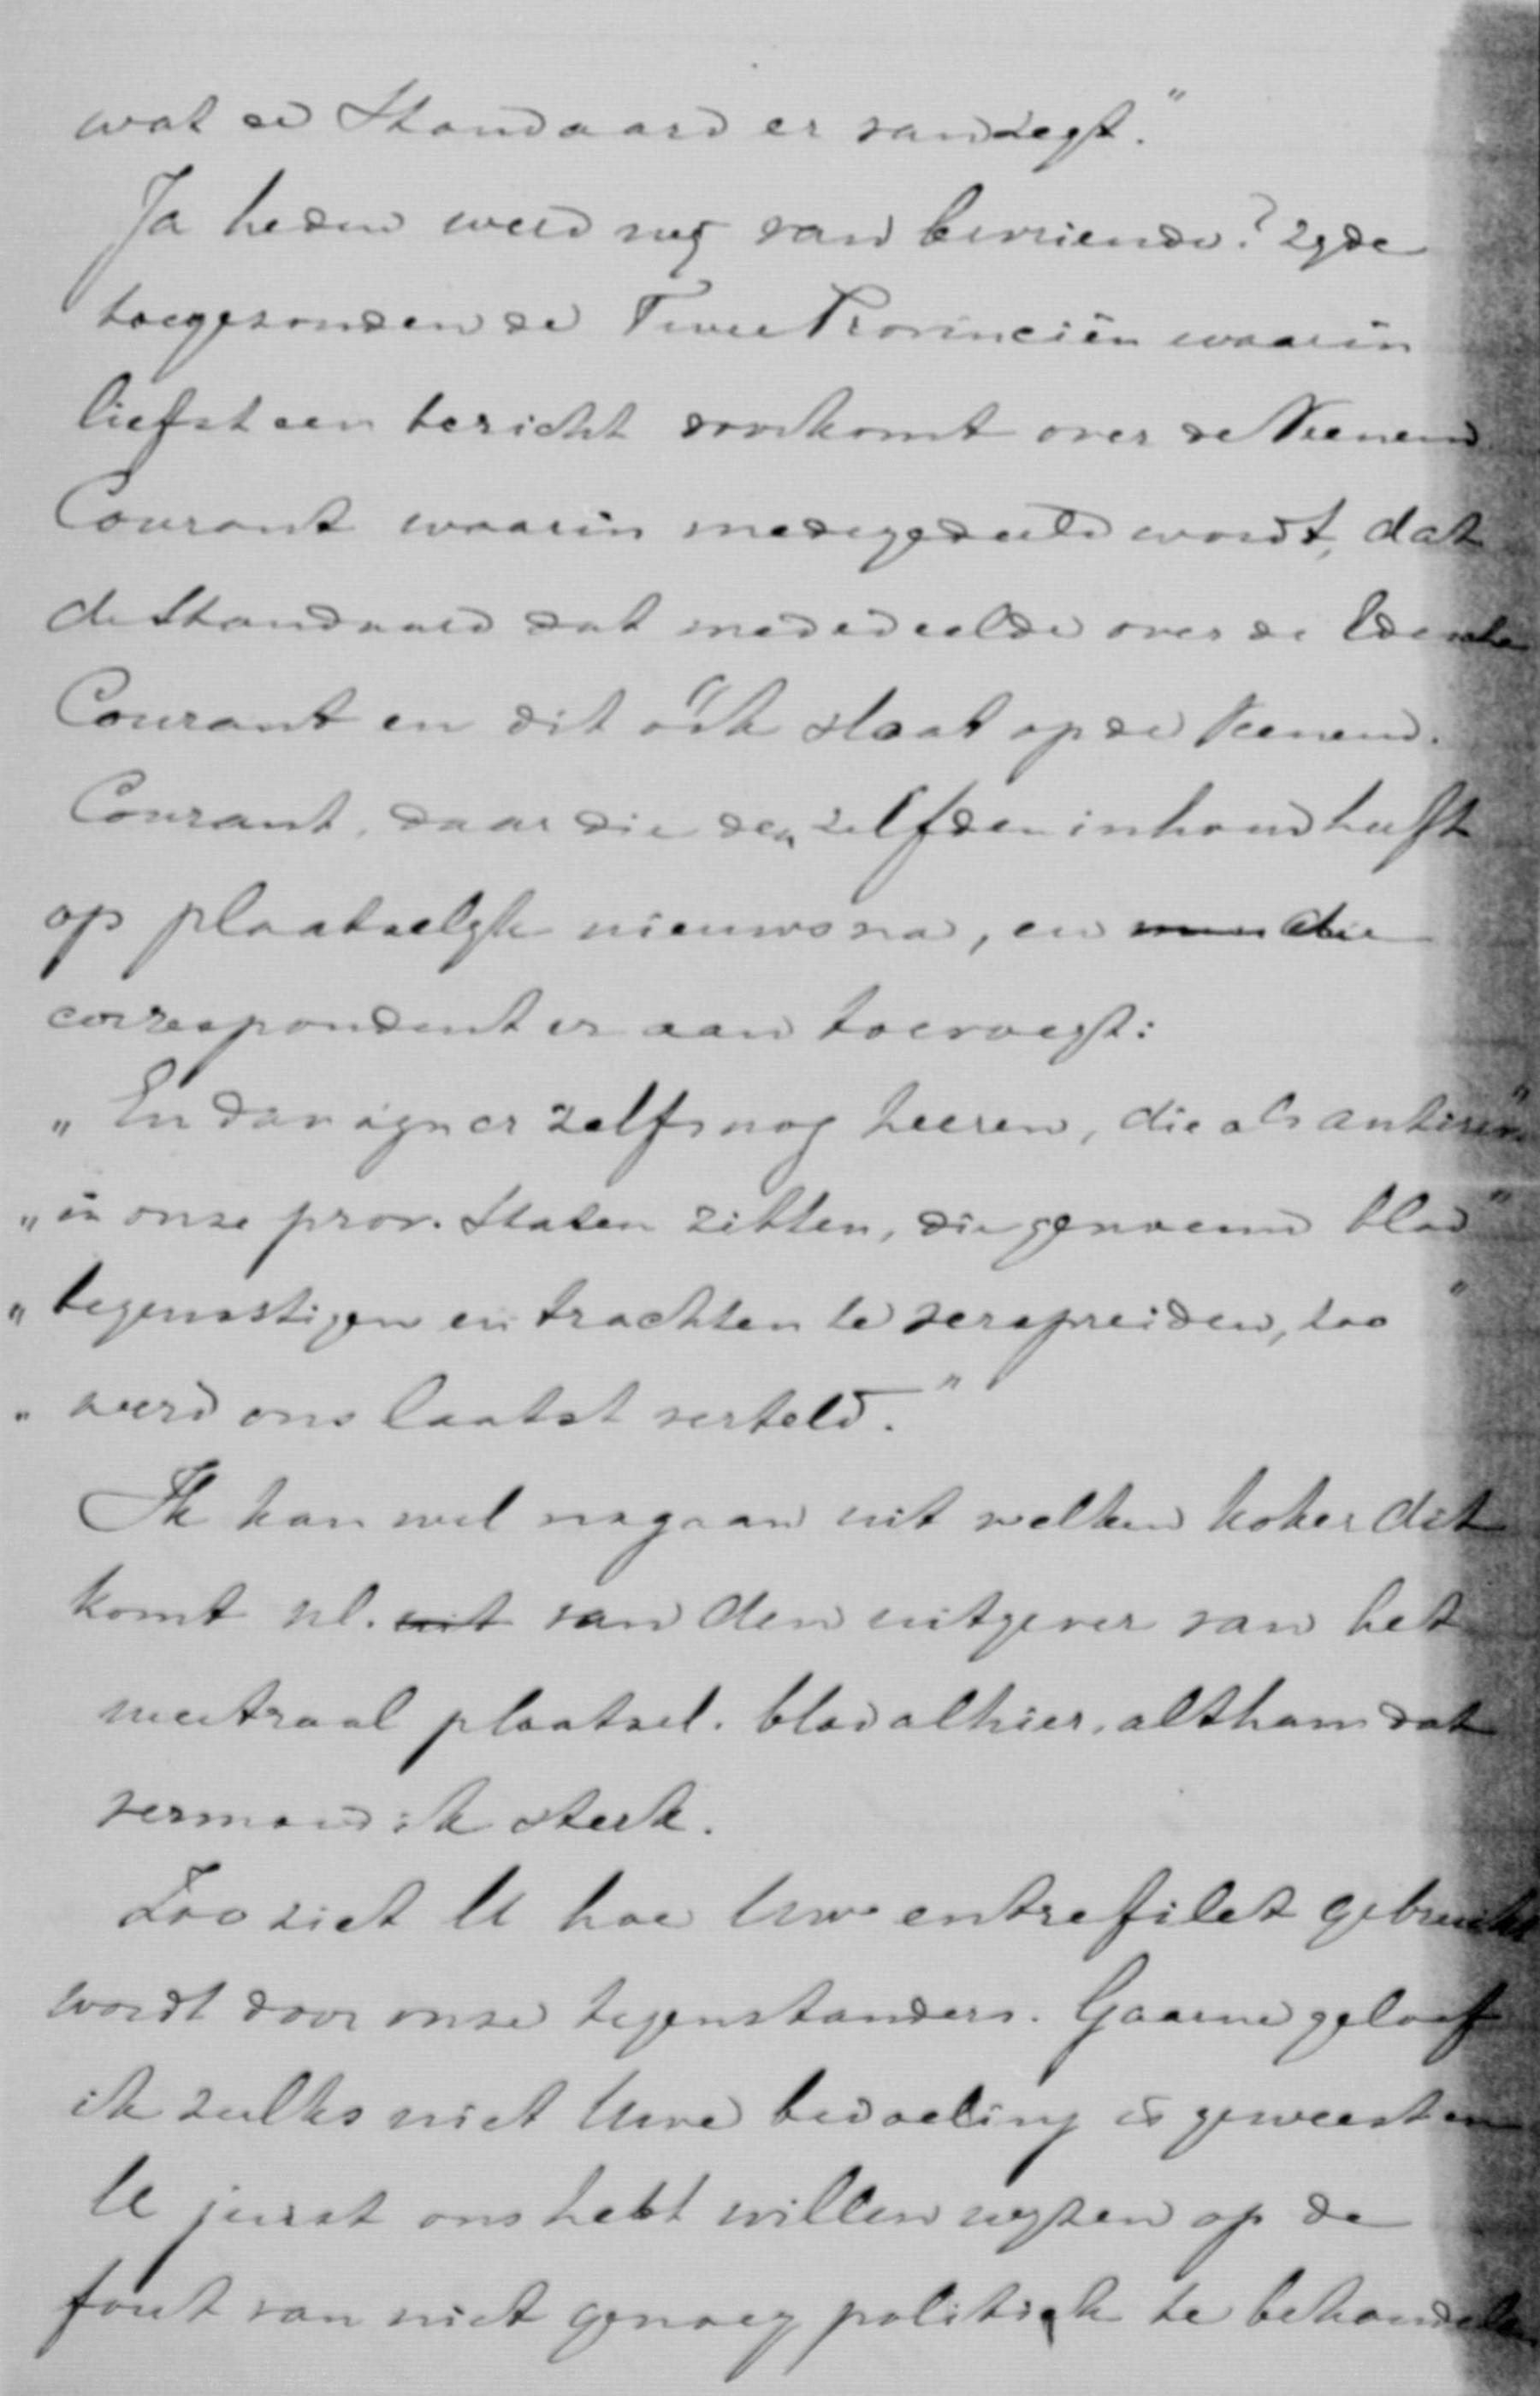 wat de Standaard er van zegt."
Ja heden werd mij van bevriende? zijde
toegezonden de Twee Provinciën waarin
liefst een bericht voorkomt over de Veenend.
Courant waarin medegedeeld wordt, dat
de Standaard dat mededeelde over de Edesche
Courant en dit óók slaat op de Veenend.
Courant, daar die denzelfden inhoud heeft
op plaatselijk nieuws na, en die
correspondent er aan toevoegt:
„En dan zijn er zelfs nog heeren, die als antirev."
„in onze prov. Staten zitten, die genoemd blad"
„begunstigen en trachten te verspreiden, zoo"
„werd ons laatst verteld."
Ik kan wel nagaan uit welken koker dit
komt nl. uit van den uitgever van het
neutraal plaatsel. blad alhier, althans dat
vermoed ik sterk.
Zoo ziet U hoe Uwe entrefilet gebruikt
wordt door onze tegenstanders. Gaarne geloof
ik zulks niet Uwe bedoeling is geweest en
U juist ons hebt willen wijzen op de
fout van niet genoeg politiek te behandelen